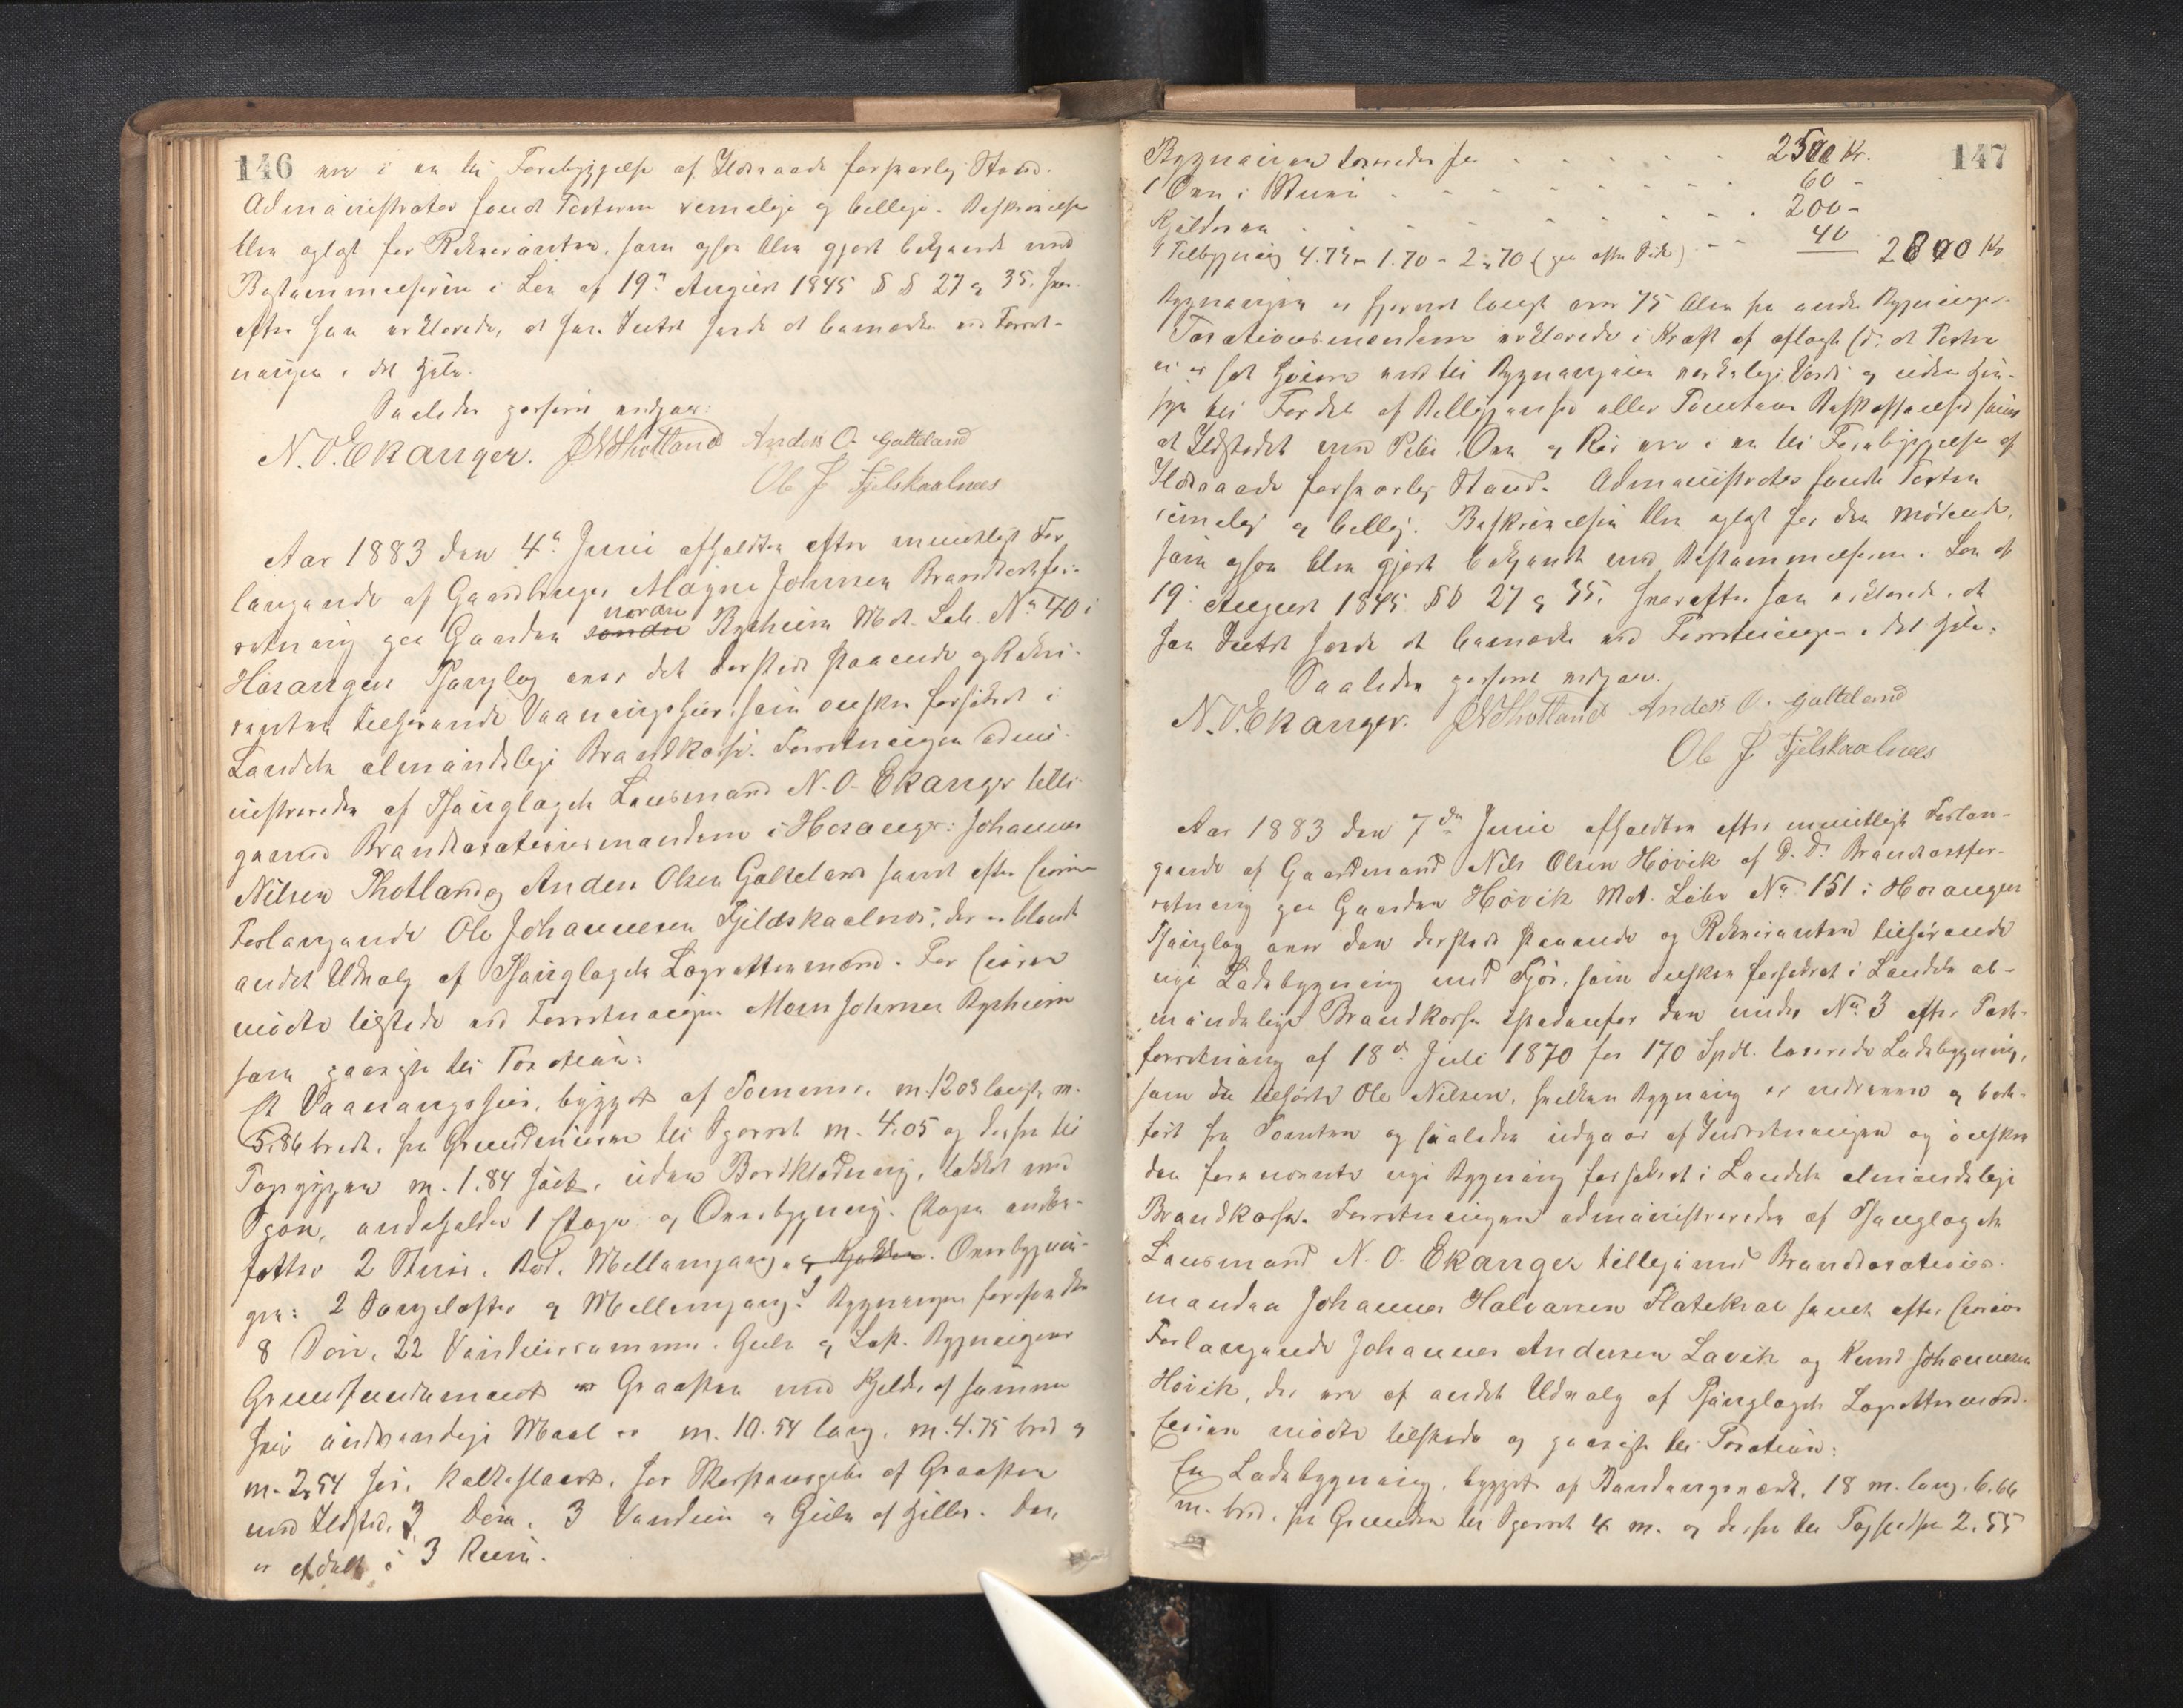 146 ere i en til Forebyggelse af Ildsvaade forsvarlig Stand.
Administrator fandt Taxterne rimelige og billige. Beskrivelsen
blev oplæst for Rekvirenten, som ogsaa blev gjort bekjendt med
Bestemmelserne i Lov af 19de August 1845 §§ 27 & 35, hvor-
efter han erklærede, at han Intet havde at bemærke ved Forret-
ningen i det Hele.
Saaledes passeret vedgaar:
N. O. Ekanger. J N Thotland Anders O. Galteland
Ole J. Fjelskaalnees
Aar 1883 den 4de Juni afholdtes efter mundtligt For-
langende af Gaardbruger Magne Johnsen Brandtaxtfor-
retning paa Gaarden søndre nordre Rysheim Mat. Løb. No 40 i
Hosanger Thinglag over det dersteds staaende og Rekvi-
renten tilhørende Vaaningshuus, som ønskes forsikret i
Landets almindelige Brandkasse. Forretningen admi-
nistreredes af Thinglagets Lensmand N. O. Ekanger tilli-
gemed Brandtaxationsmændene i Hosanger: Johannes
Nilsen Thotland og Anders Olsen Galteland samt efter Eierens
Forlangende Ole Johannesen Fjeldskaalnes, der er blandt
andet Udvalg af Thinglagets Lagrettesmænd. For Eieren
mødte tilstede ved Forretningen Mons Johnsen Rysheim
som paaviste til Taxation:
Et Vaaningshuus, bygget af Tømmer, m. 12.03 langt, m.
5.86 bredt, fra Grundmuren til Sparret m. 4.05 og derfra til
Tagryggen m. 1.84 høit, uden Bordklædning, tækket med
Spon, indeholder 1 Etage og Overbygning. Etagen inde-
fatter 2 Stuer, Bod, Mellemgang og Kjøkken. Overbygnin-
gen: 2 Sængelofter og Mellemgang. Bygningen forefindes
8 Döre, 22 Vinduesrammer, Gulv og Loft. Bygningens
Grundfundament er Graasten med Kjelder af samme
hvis indvendige Maal er m. 10.54 lang, m. 4.75 bred og
m. 2.54 høi, kalkslaaet, har Skorstenspibe af Graasten
med Ildsted, 3 Döre, 3 Vinduer og Gulv af Heller. Den
er afdelt i 3 Rum.
147
Bygningen taxeredes for . . . . . . 2500 Kr.
1 Ovn i Stuen . . . . . . . . . 60 -
Kjelderen . . . . . . . . . 200 -
1 Tilbygning 4.75 m 1.70 - 2.70 (paa østre Side) - - 40 2800 Kr
Bygningen er fjernet langt over 75 Alen fra andre Bygninger.
Taxationsmændene erklærede i Kraft af aflagt Ed, at Taxten
ei er sat høiere end til Bygningens virkelige Værdi og uden Hen-
syn til Fordel af Beliggenhed eller Tomtens Beskaffenhed samt
at Ildstedet med Pibe, Ovn og Rør ere i en til Forebyggelse af
Ildsvaade forsvarlig Stand. Administrator fandt Taxten
rimelig og billig. Beskrivelsen blev oplæst for den Mødende,
som ogsaa blev gjort bekjendt med Bestemmelserne i Lov af
19de August 1845 §§ 27 & 35, hvorefter han erklærede, at
han Intet havde at bemærke ved Forretningen i det Hele.
Saaledes passeret vedgaar.
N. O. Ekanger. J N Thotland Anders O. Galteland
Ole J. Fjelskaalnees
Aar 1883 den 7de Juni afholdtes efter mundtligt Forlan-
gende af Gaardmand Nils Olsen Høvik af D. D. Brandtaxtfor-
retning paa Gaarden Høvik Mat. Løbe No 151 i Hosanger
Thinglag over den dersteds staaende og Rekvirenten tilhørende
nye Ladebygning med Fjøs, som ønskes forsikret i Landets al-
mindelige Brandkasse istedenfor den under No 3 efter Taxt-
forretning af 18de Juli 1870 for 170 Spdl. taxerede Ladebygning,
som da tilhørte Ole Nilsen, hvilken Bygning er nedreven og bort-
ført fra Tomten og saaledes udgaar af Indretningen og ønskes
den forenævnte nye Bygning forsikret i Landets almindelige
Brandkasse. Forretningen administreredes af Thinglagets
Lensmand N. O. Ekanger tilligemed Brandtaxations-
manden Johannes Halvorsen Flatekval samt efter Eierens
Forlangende Johannes Andersen Lavik og Knud Johannesen
Høvik, der ere af andet Udvalg af Thinglagets Lagrettesmænd.
Eieren mødte tilstede og paaviste til Taxation:
En Ladebygning, bygget af Bindingsverk, 18 m. lang, 6.66
m. bred, fra Grunden til Sparret 4 m. og derfra til Taghøiden 2.55